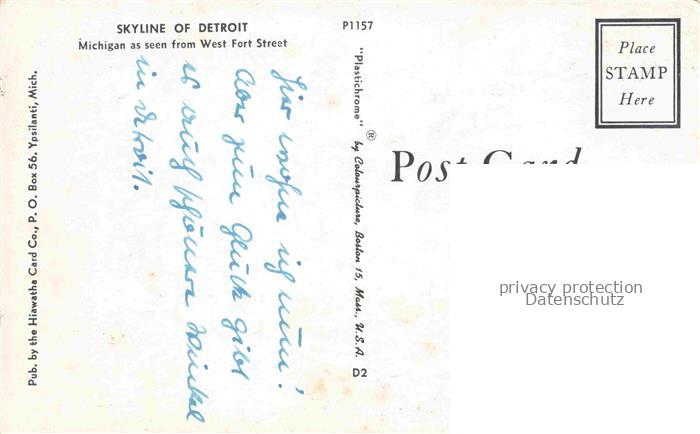 SKYLINE OF DETROIT
Michigan as seen from West Fort Street
P1157
Place
STAMP
Here
Post Card
Hier wohne ich nun!
Aber zum Glück gibt
es auch schönere Winkel
in Detroit.
"Plastichrome" ® by Colourpicture, Boston 15, Mass., U.S.A.
D2
Pub. by the Hiawatha Card Co., P. O. Box 56, Ypsilanti, Mich.
privacy protection
Datenschutz